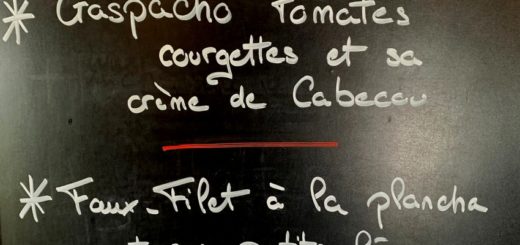 * Gaspacho Tomates
courgettes et sa
crème de Cabecou
* Faux-Filet à la plancha